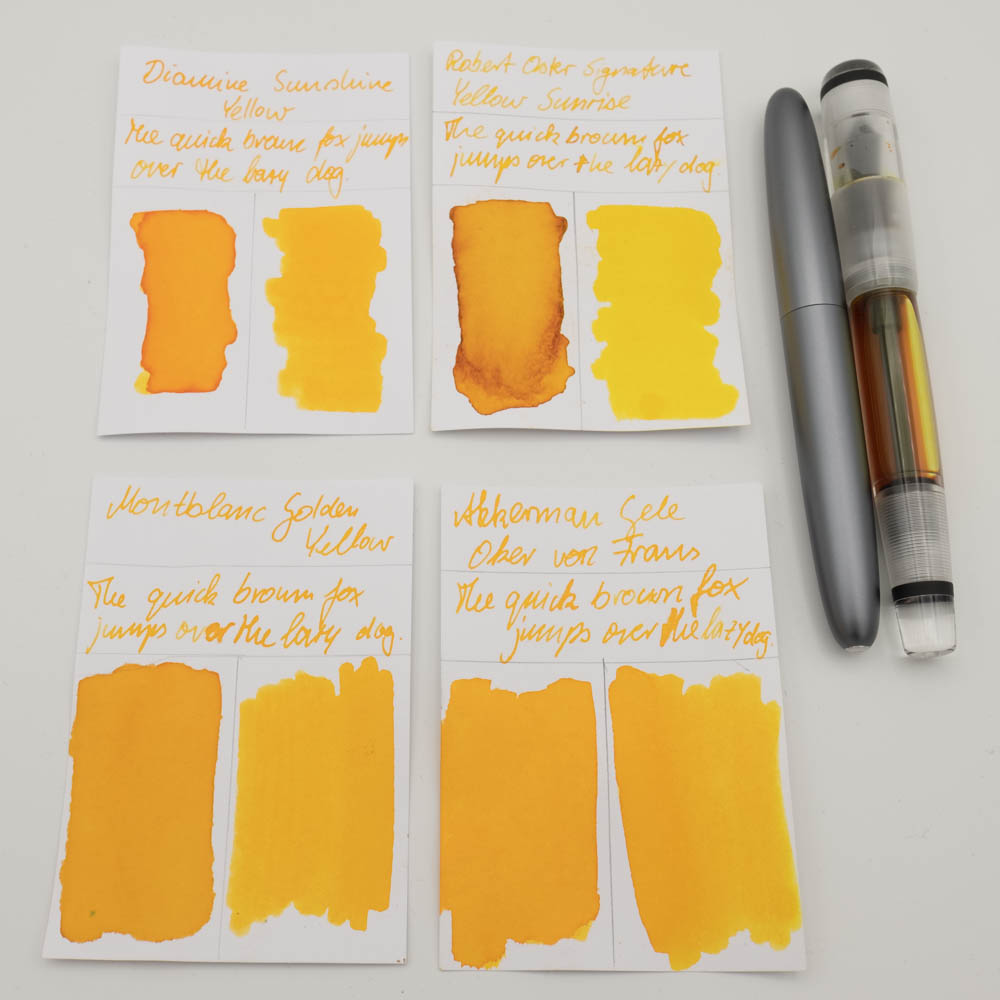 Diamine Sunshine
Yellow
The quick brown fox jumps
over the lazy dog.
Robert Oster Signature
Yellow Sunrise
The quick brown fox
jumps over the lazy dog
Montblanc Golden
Yellow
The quick brown fox
jumps over the lazy dog.
Akkerman Gele
Oker von Frans
The quick brown fox
jumps over the lazy dog.